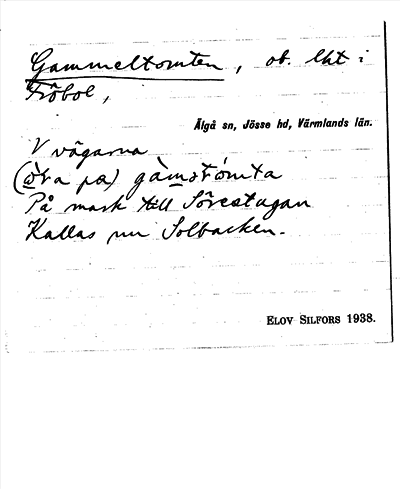 Gammeltomten, ob. lht i
Fröbol,
Älgå sn, Jösse hd, Värmlands län.
V vägarna
(òta pæ) gàmstómta
På mark till Sörestugan
Kallas nu Solbacken.
ELOV SILFORS 1938.